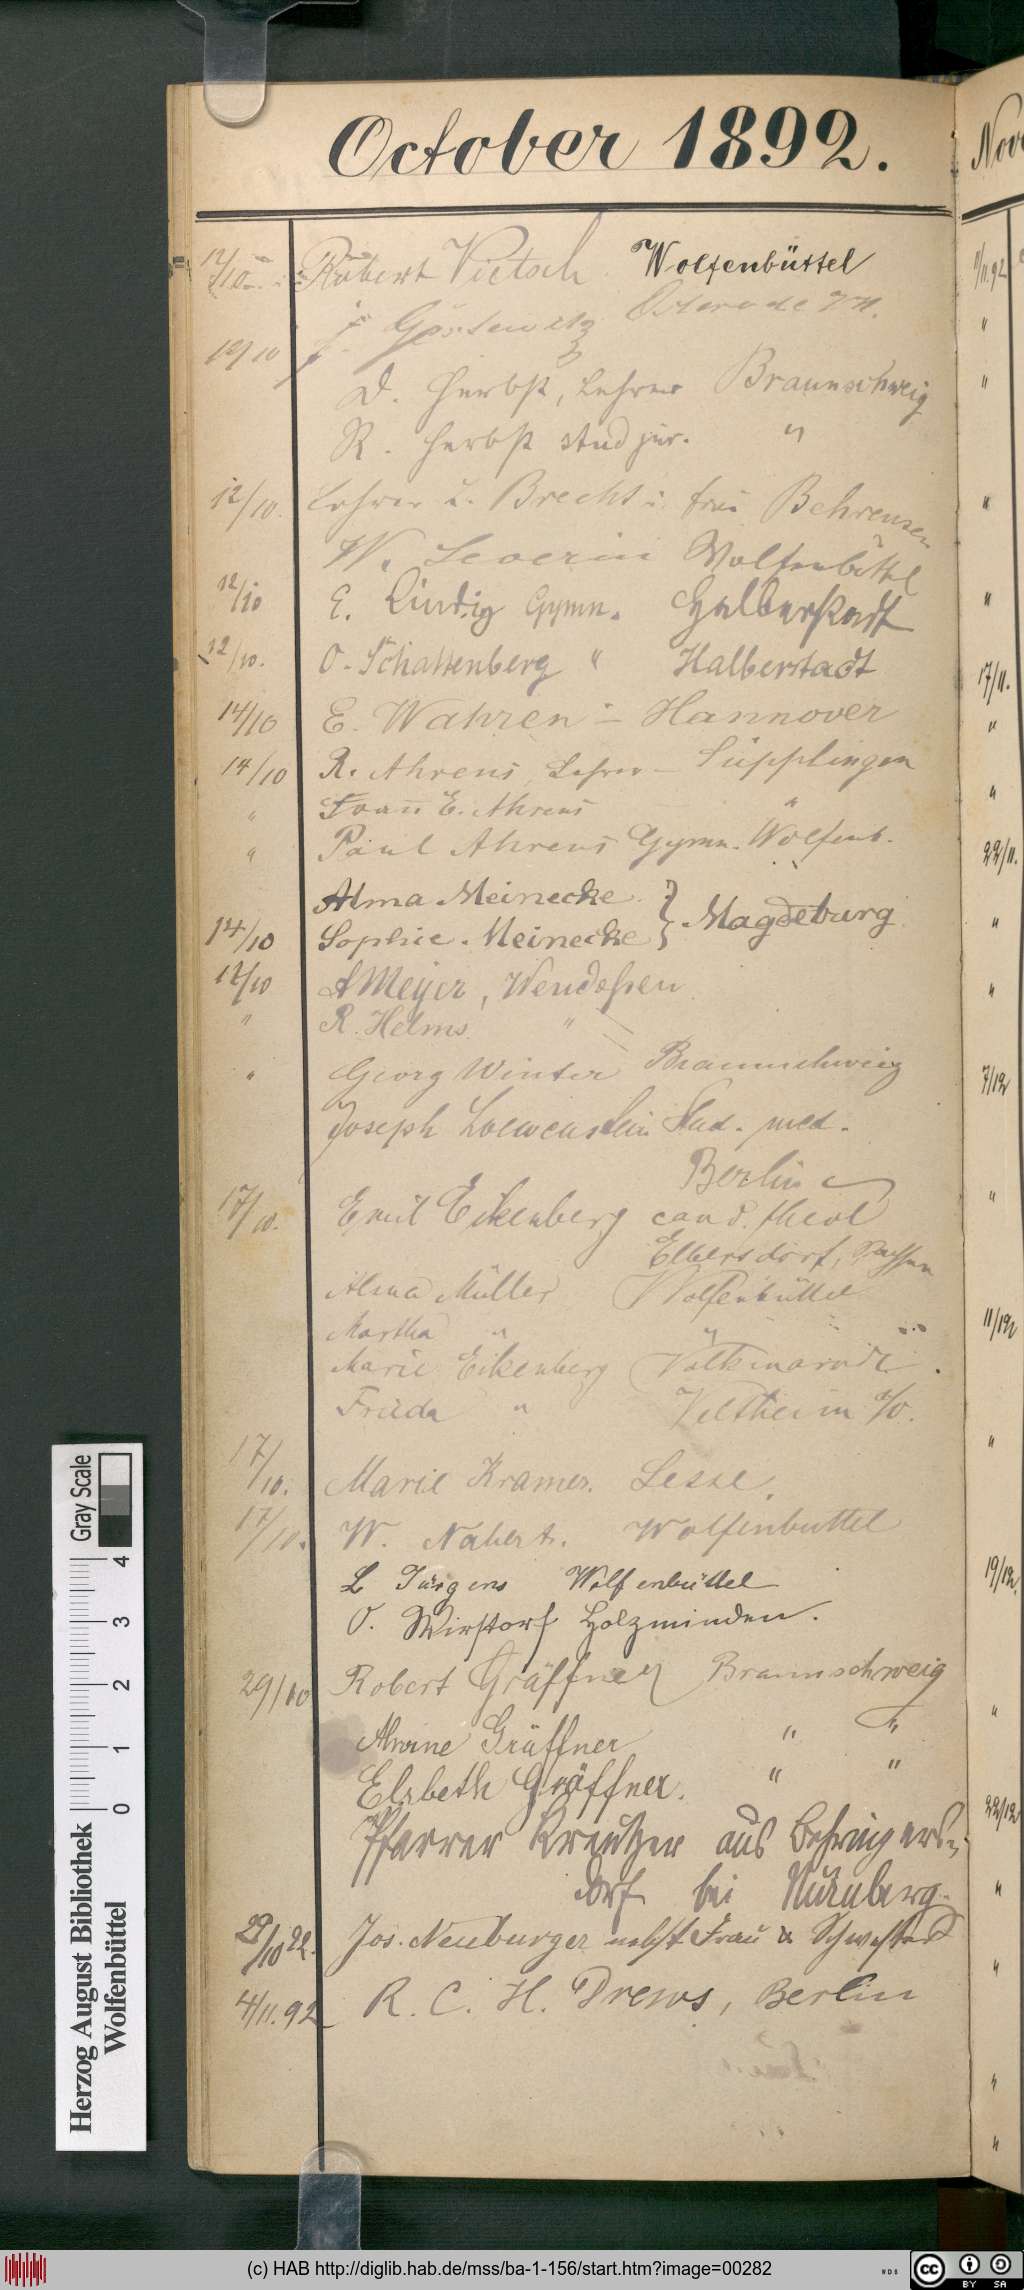 October 1892.
12/10 Robert Vietsch Wolfenbüttel
J. Osterode
12/10
D. Herbst, Lehrer Braunschweig
R. Herbst stud jur. "
12/10. Lehrer u. Frau Behrensen
W. Severin Wolfenbüttel
12/10 E. Lindig Gymn. Halberstadt
12/10. O. Schattenberg " Halberstadt
14/10 E. Wahren – Hannover
14/10 R. Ahrens, Lehrer – Süpplingen
" Frau E. Ahrens "
" Paul Ahrens Gymn. Wolfenb.
Alma Meinecke } Magdeburg
14/10 Sophie Meinecke
12/10 A Meyer, Wendessen
" R. Helms "
" Georg Winter Braunschweig
Joseph Loewenstein Stud. med.
Berlin
17/10. Emil Eikenberg cand. theol
Elbersdorf,
Alma Müller Wolfenbüttel
Martha " "
Marie Eikenberg Volkmarode.
Frieda " Veltheim a/O.
17/10. Marie Kramer. Lesse.
17/10. W. Nabert. Wolfenbüttel
L Jürgens Wolfenbüttel
O. Wirstorf Holzminden.
29/10 Robert Gräffner Braunschweig
Alwine Gräffner " "
Elsbeth Gräffner. " "
Pfarrer Kreutzer aus Behringers-
dorf bei Nürnberg.
29/10 92. Jos. Neuburger nebst Frau & Schwester
4/11.92 R. C. H. Drews, Berlin
Nov
11/11.92
"
"
"
"
17/11.
"
"
22/11.
"
"
7/12
"
11/12
"
19/12.
"
22/12
"
"
"
"
Gray Scale
4
3
2
1
0
Herzog August Bibliothek
Wolfenbüttel
(c) HAB http://diglib.hab.de/mss/ba-1-156/start.htm?image=00282
cc BY SA